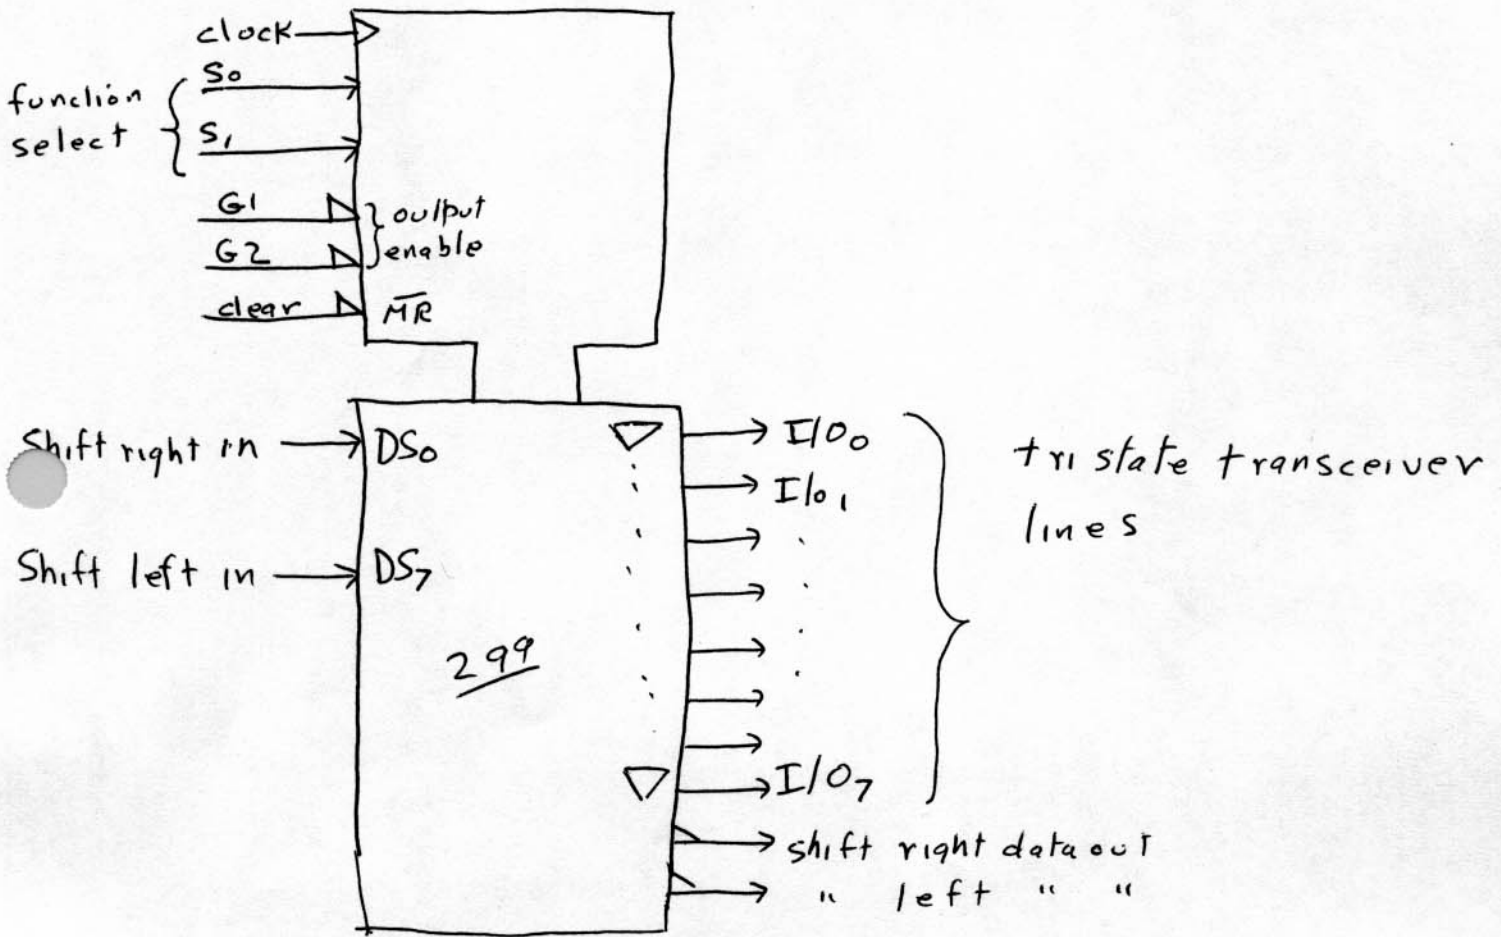 clock
function
select
S0
S1
G1
G2
output
enable
clear
M̅R̅
Shift right in
DS0
Shift left in
DS7
299
I/O0
I/O1
I/O7
tri state transceiver
lines
shift right data out
" left " "